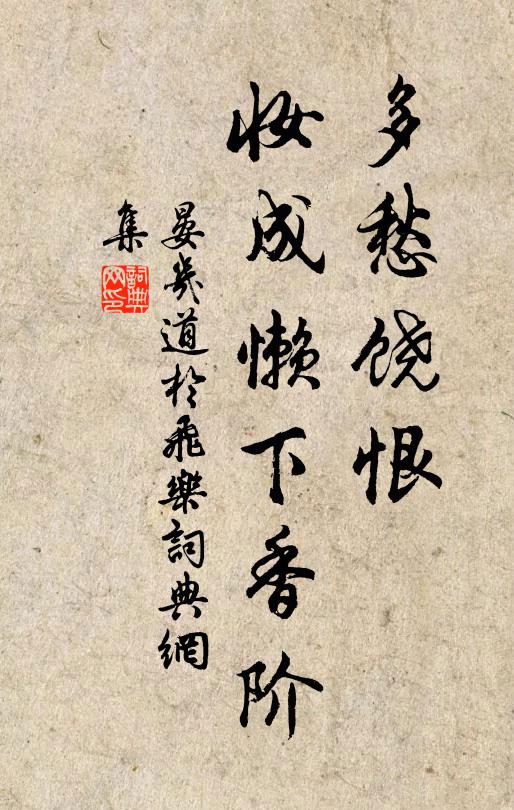 多愁饶恨
妆成懒下香阶
晏几道於飛樂詞典網
集
詞典网印